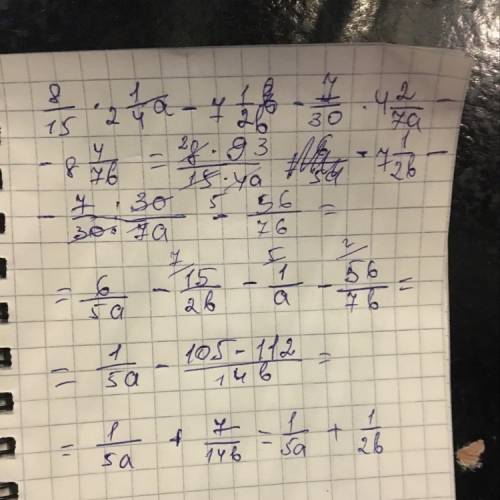 8/15 · 2 1/4a − 7 1/2b − 7/30 · 4 2/7a −
− 8 4/7b = 2 8 · 9 3 / 15 · 4a − 7 1/2b −
− 7 · 30 / 30 · 7a 5 − 56/7b =
= 6/5a − 15/2b 7 − 1/a 5 − 56/7b 2 =
= 1/5a − 105 − 112 / 14b =
= 1/5a + 7/14b = 1/5a + 1/2b